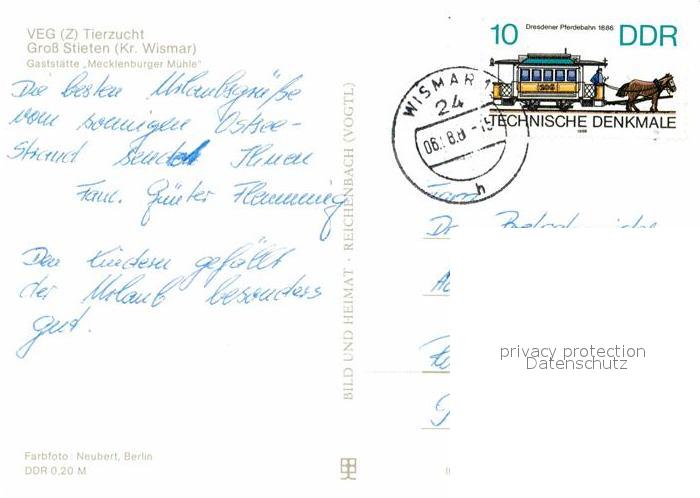 VEG (Z) Tierzucht
Groß Stieten (Kr. Wismar)
Gaststätte „Mecklenburger Mühle"
Die besten Urlaubsgrüße
vom sonnigen Ostsee-
Strand sendet Ihnen
Fam. Günter Flemming
Den Kindern gefällt
der Urlaub besonders
gut.
Farbfoto: Neubert, Berlin
DDR 0,20 M
BILD UND HEIMAT · REICHENBACH (VOGTL)
Dresdener Pferdebahn 1886
10 DDR
TECHNISCHE DENKMALE
1986
WISMAR 1
24
h
Fam
Dr.
privacy protection
Datenschutz